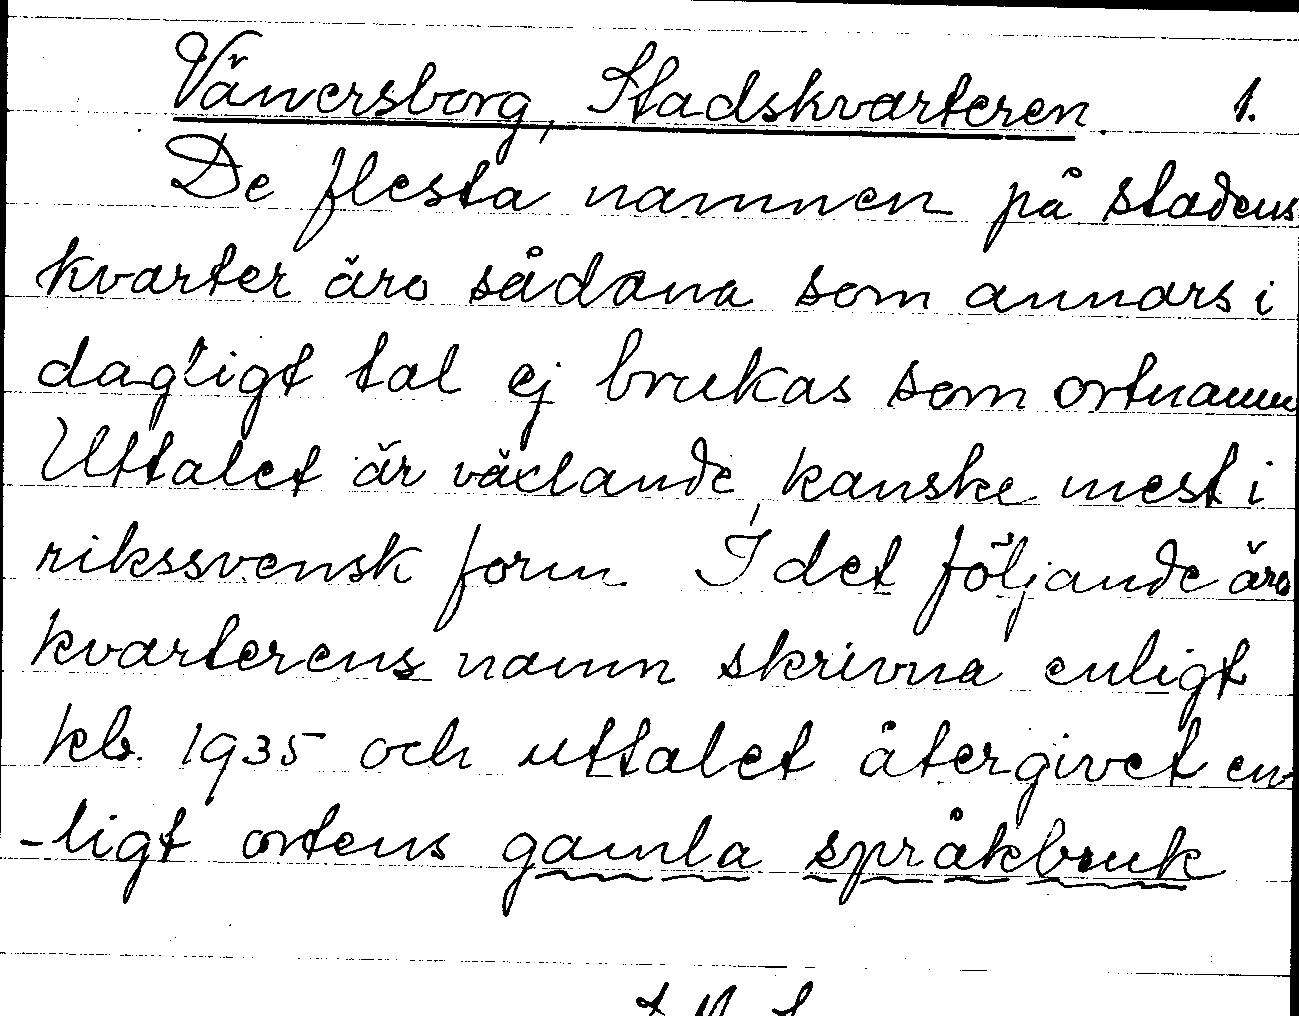 Vänersborg, Stadskvarteren. 1.
De flesta namnen på stadens
kvarter äro sådana som annars i
dagligt tal ej brukas som ortnamn
Uttalet är växlande, kanske mest i
rikssvensk form I det följande äro
kvarterens namn skrivna enligt
kb. 1935 och uttalet återgivet en-
-ligt ortens gamla språkbruk